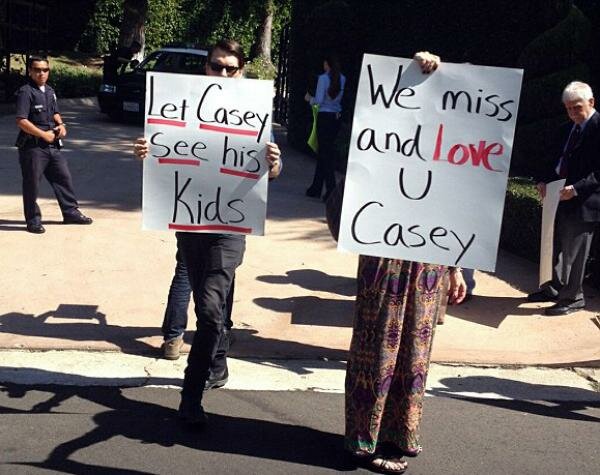 Let Casey
See his
Kids
We miss
and Love
U
Casey